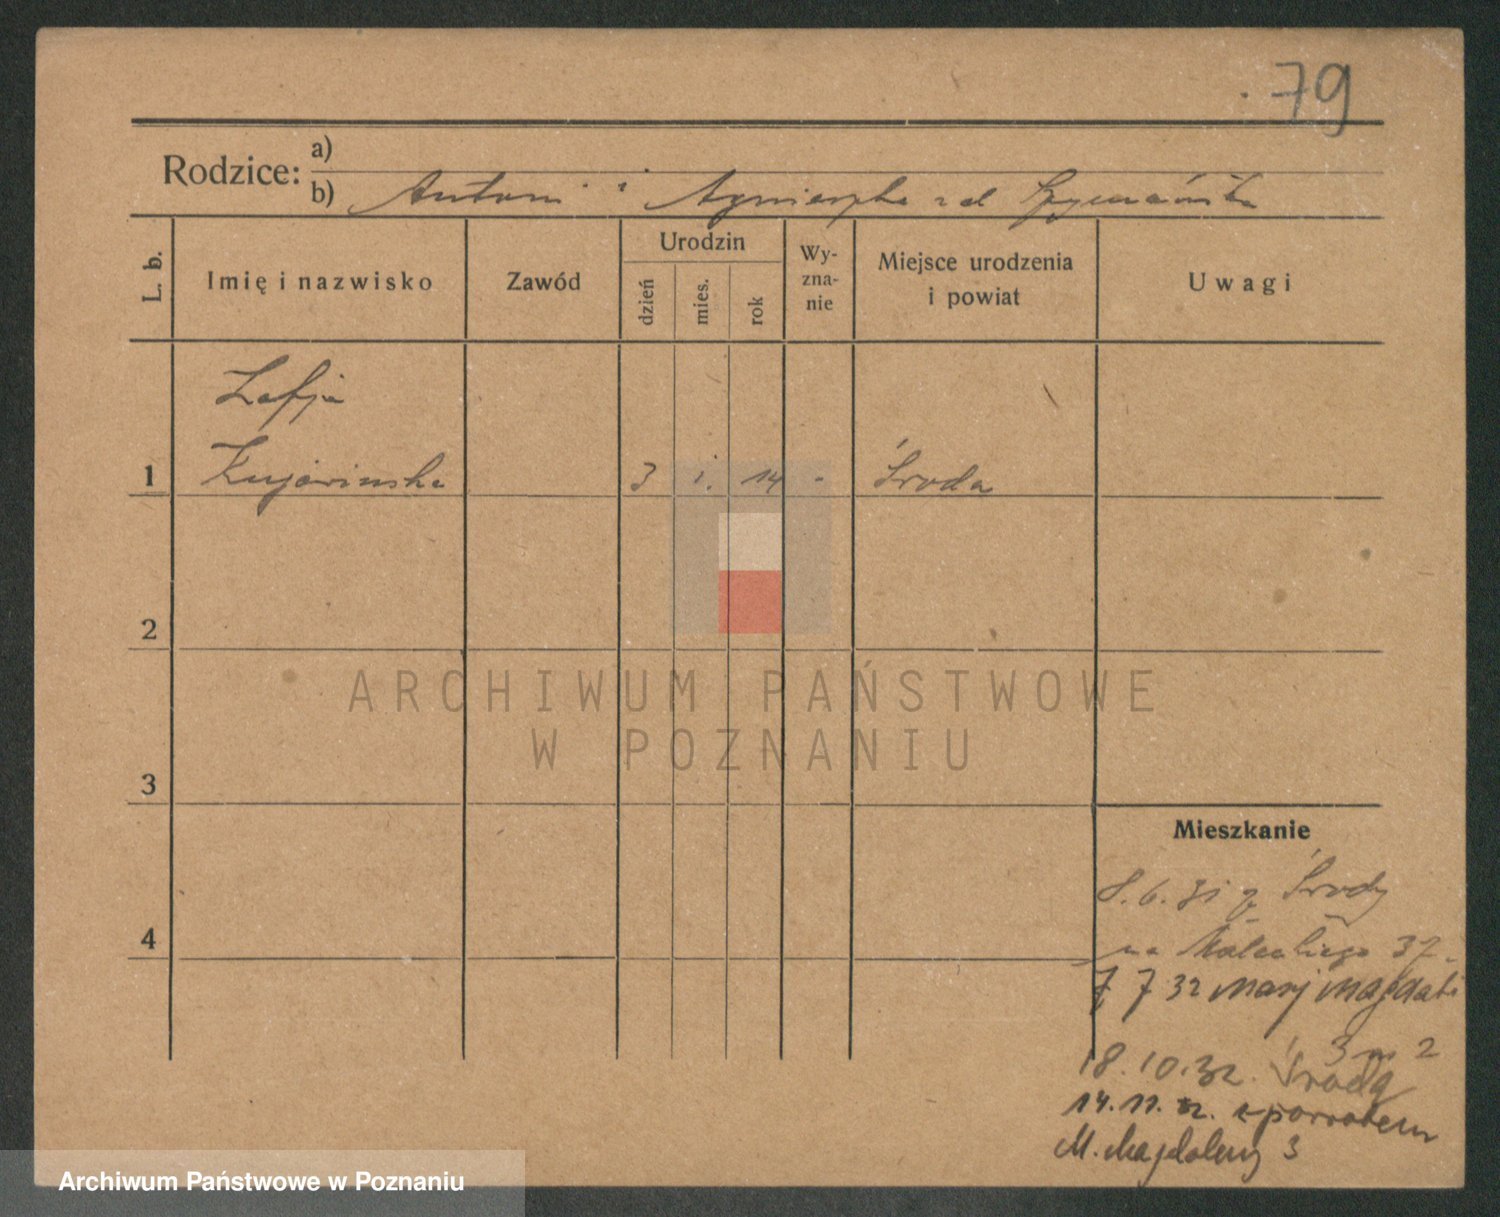 79
Rodzice: a)
b) Antoni i Agnieszka z d Szymańska
L. b.
Imię i nazwisko
Zawód
Urodzin
dzień
mies.
rok
Wy-
zna-
nie
Miejsce urodzenia
i powiat
Uwagi
Zofja
1 Kujawińska 3 1. 14 - Środa
2
ARCHIWUM PAŃSTWOWE
W POZNANIU
3
Mieszkanie
8.6.31 z Środy
4
na 37.
7 7 32 Marj Magdale
3 m 2
18.10.32. Środa
14.11. 32. z powrotem
M. Magdaleny 3
Archiwum Państwowe w Poznaniu